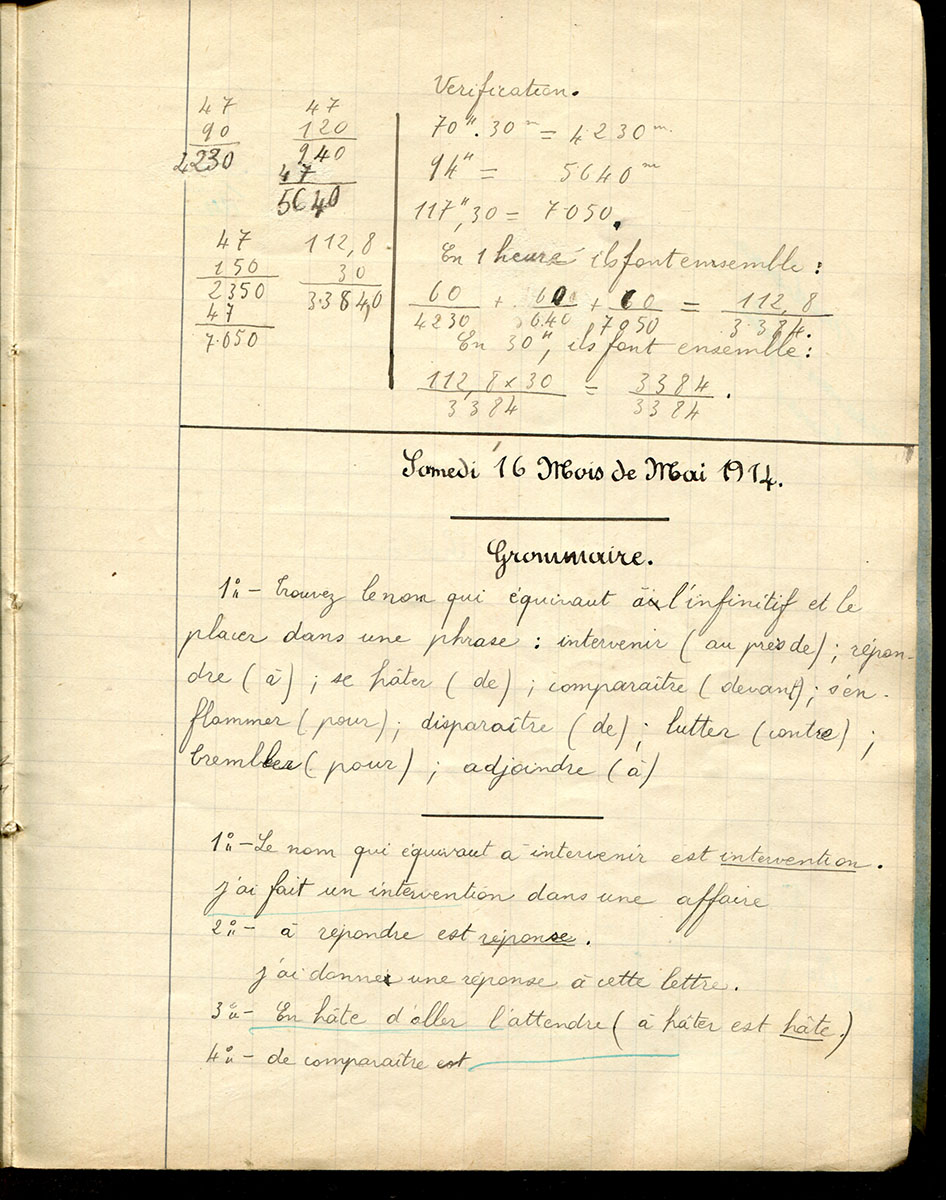 47
90
4230
47
120
940
47
5640
47
150
2350
47
7.050
112,8
30
3.384,0
Verification.
70ʰ.30ᵐ = 4230ᵐ.
94ʰ = 5640ᵐ
117ʰ,30 = 7.050.
En 1 heure ils font emsemble :
60/4230 + 60/5640 + 60/7050 = 112,8/3.384.
En 30ʰ, ils font ensemble :
112,8 x 30/3384 = 3384/3384.
Samedi 16 Mois de Mai 1914.
Grammaire.
1º – Trouvez le nom qui équivaut à l'infinitif et le
placer dans une phrase : intervenir (au près de) ; répon-
dre (à) ; se hâter (de) ; comparaître (devant) ; s'en-
flammer (pour) ; disparaître (de) ; lutter (contre) ;
trembler (pour) ; adjoindre (à)
1º – Le nom qui équivaut à intervenir est intervention.
j'ai fait un intervention dans une affaire
2º – à répondre est réponse.
j'ai donné une réponse à cette lettre.
3º – En hâte d'aller l'attendre (à hâter est hâte.)
4º – de comparaître est